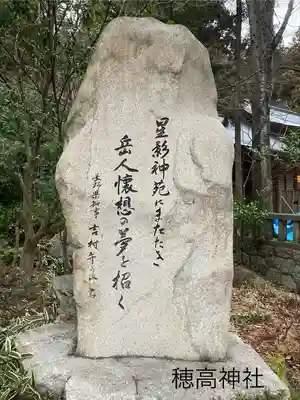 星影神苑にまたたき
岳人懐想の夢を招く
長野県知事 吉村午良
穂高神社